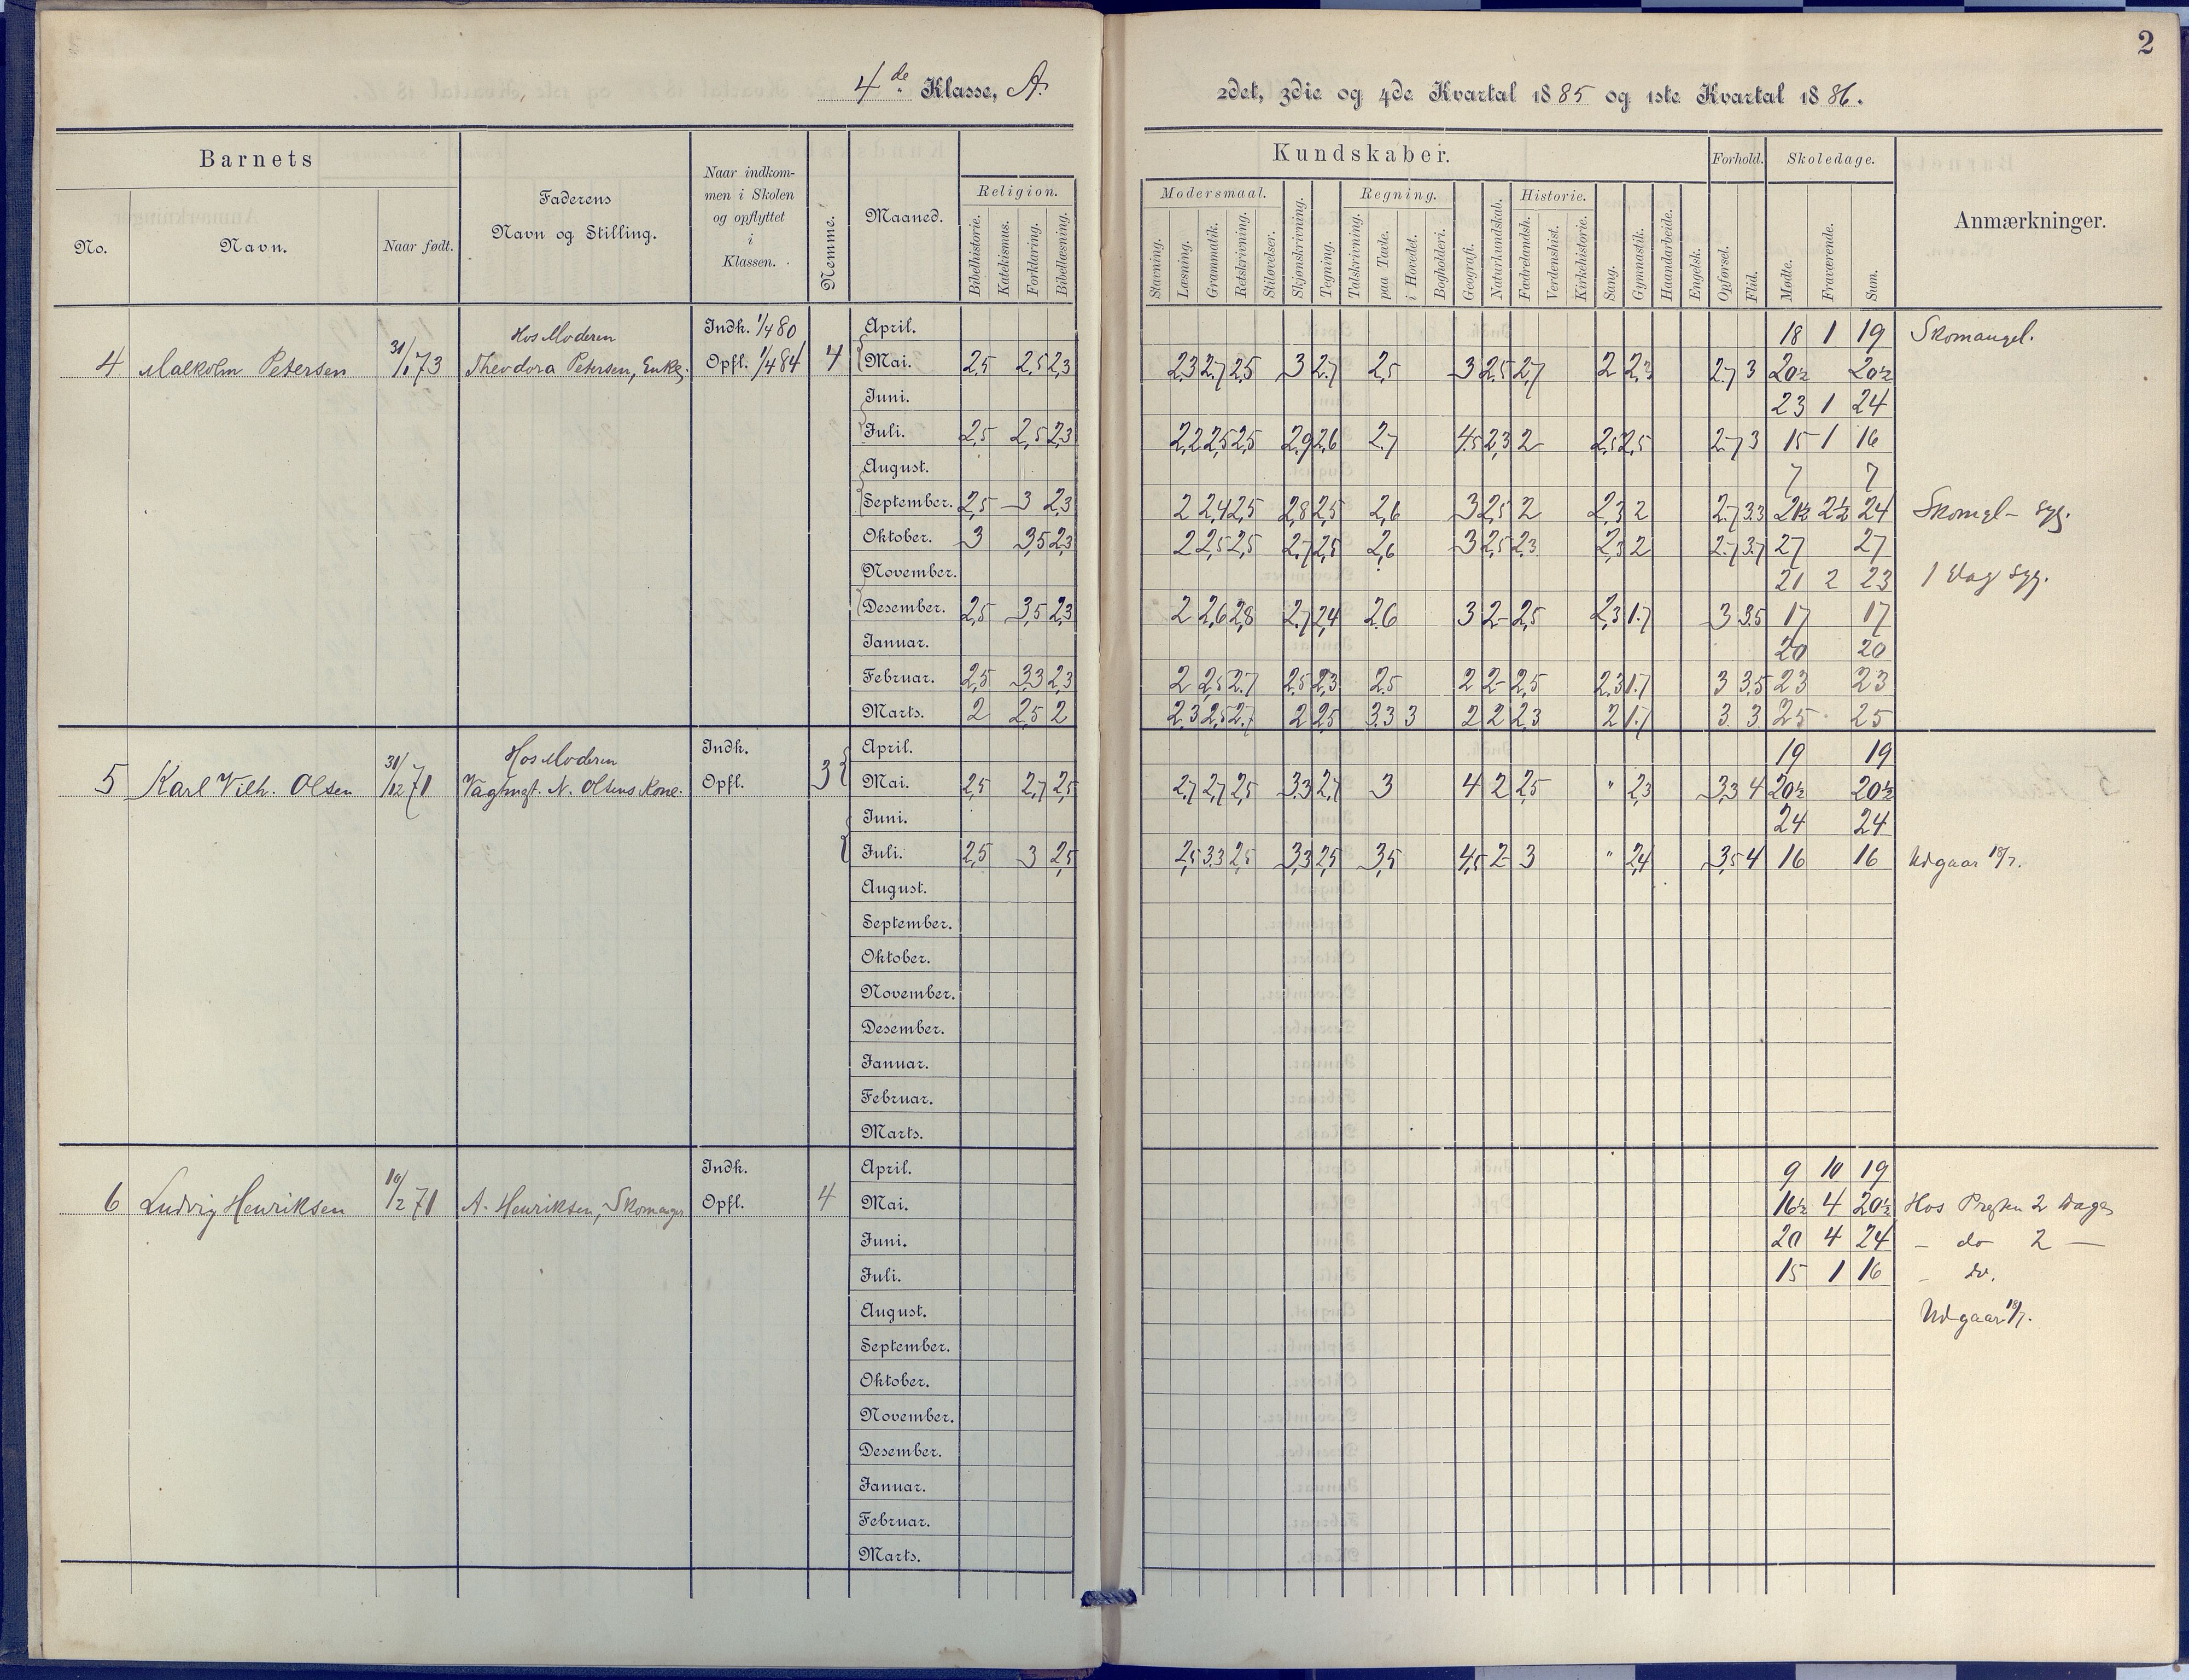 2
4de Klasse, A.
2det, 3die og 4de Kvartal 1885 og 1ste Kvartal 1886.
Barnets
No.
Navn.
Naar født.
Faderens
Navn og Stilling.
Naar indkom-
men i Skolen
og opflyttet
i
Klassen.
Nemme.
Maaned.
Religion.
Bibelhistorie.
Katekismus.
Forklaring.
Bibellæsning.
Kundskaber.
Modersmaal.
Stavning.
Læsning.
Grammatik.
Retskrivning.
Stiløvelser.
Skjønskrivning.
Tegning.
Regning.
Talskrivning.
paa Tavle.
i Hovedet.
Bogholderi.
Geografi.
Naturkundskab.
Historie.
Fædrelandsh.
Verdenshist.
Kirkehistorie.
Sang.
Gymnastik.
Haandarbeide.
Engelsk.
Forhold.
Opførsel.
Flid.
Skoledage.
Mødte.
Fraværende.
Sum.
Anmærkninger.
4 Malkolm Petersen 31/1 73
Hos Moderen
Theodora Petersen, Enke.
Indk. 1/4 80
Opfl. 1/4 84
4
April. 18 1 19 Skomangel.
Mai. 2,5 2,5 2,3 2,3 2,7 2,5 3 2,7 2,5 3 2,5 2,7 2 2,3 2,7 3 20½ 20½
Juni. 23 1 24
Juli. 2,5 2,5 2,3 2,2 2,5 2,5 2,9 2,6 2,7 4,5 2,3 2 2,5 2,5 2,7 3 15 1 16
August. 7 7
September. 2,5 3 2,3 2 2,4 2,5 2,8 2,5 2,6 3 2,5 2 2,3 2 2,7 3,3 21½ 2½ 24 Skomgl - syg.
Oktober. 3 3,5 2,3 2 2,5 2,5 2,7 2,5 2,6 3 2,5 2,3 2,3 2 2,7 3,7 27 27
November. 21 2 23 1 Dag syg.
Desember. 2,5 3,5 2,3 2 2,6 2,8 2,7 2,4 2,6 3 2 2,5 2,3 1,7 3 3,5 17 17
Januar. 20 20
Februar. 2,5 3,3 2,3 2 2,5 2,7 2,5 2,3 2,5 2 2 2,5 2,3 1,7 3 3,5 23 23
Marts. 2 2,5 2 2,3 2,5 2,7 2 2,5 3,3 3 2 2 2,3 2 1,7 3 3 25 25
5 Karl Vilh. Olsen 31/12 71
Hos Moderen
Vagtmst. N. Olsens Kone.
Indk.
Opfl.
3
April. 19 19
Mai. 2,5 2,7 2,5 2,7 2,7 2,5 3,3 2,7 3 4 2 2,5 " 2,3 3,3 4 20½ 20½
Juni. 24 24
Juli. 2,5 3 2,5 2,5 3,3 2,5 3,3 2,5 3,5 4,5 2 3 " 2,4 3,5 4 16 16 Udgaar 18/7.
August.
September.
Oktober.
November.
Desember.
Januar.
Februar.
Marts.
6 Ludvig Henriksen 10/2 71
A. Henriksen, Skomager
Indk.
Opfl.
4
April. 9 10 19
Mai. 16½ 4 20½ Hos Presten 2 Dage
Juni. 20 4 24 - do 2 —
Juli. 15 1 16 - do.
August. Udgaar 18/7.
September.
Oktober.
November.
Desember.
Januar.
Februar.
Marts.